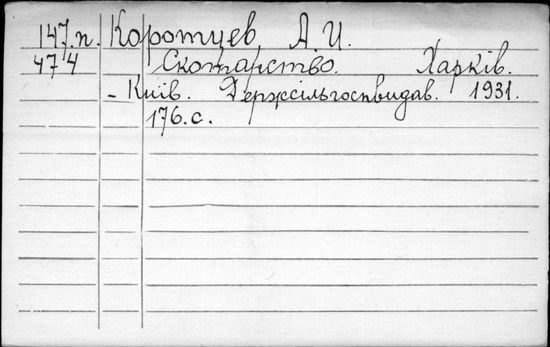 147.п. Коротцев А. И.
474 Скотарство. Харків.
- Київ. Держсільгоспвидав. 1931.
176.с.